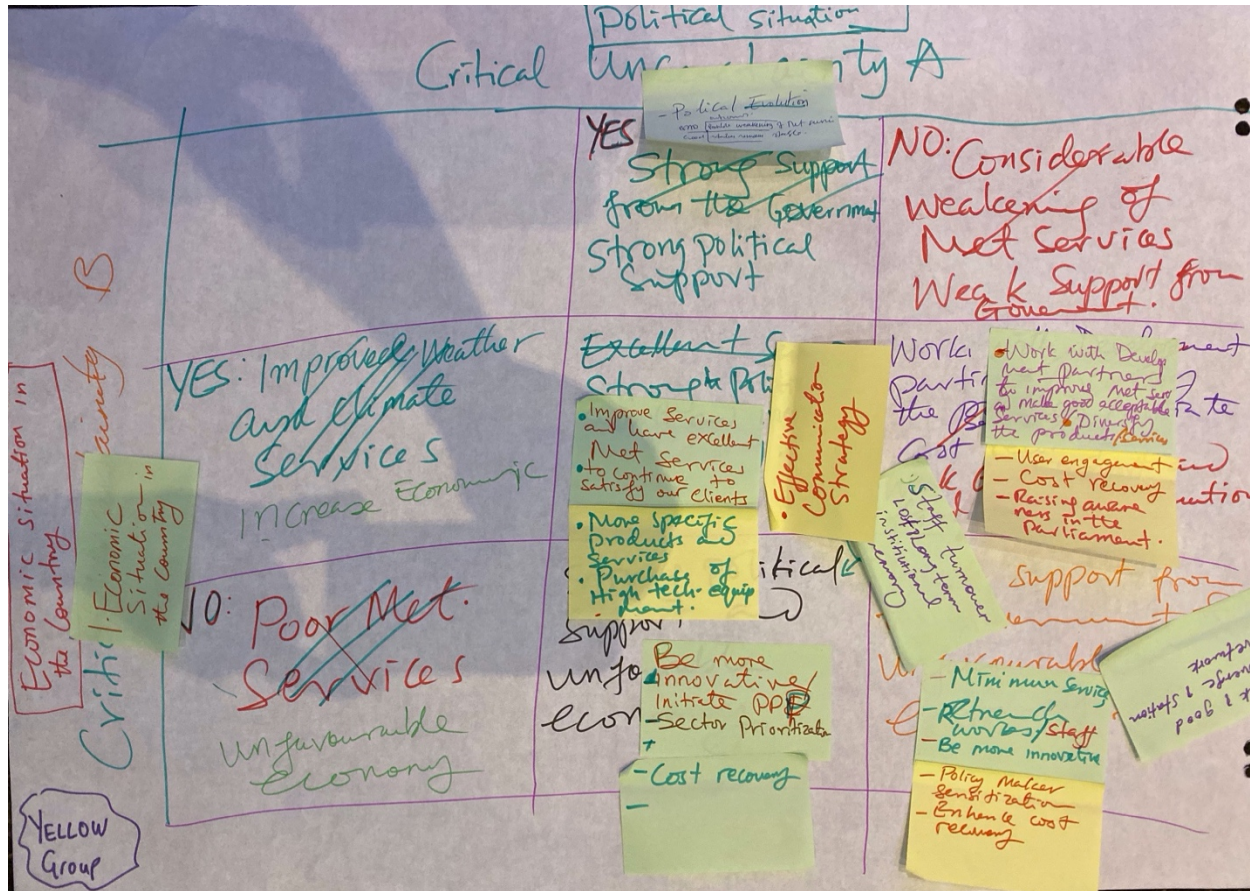 Political situation
Critical Unc nty A
- Polical Evolution
YES
Strong Support
from the Government
Strong political
Support
NO: Considerable
Weakening of
Met Services
Weak Support from
Goverment.
B
Economic situation in
the Country
Critic
Economic
Situation in
the Country
YES: Improved Weather
and climate
Services
increase Economic
Excellent S
Strong Poli
• Improve Services
and have excellent
Met Services
• to continue to
satisfy our clients
• More specific
products and
Services
• Purchase of
High tech-equip
ment.
• Effective
Communication
Strategy
Work
partn
the
Cost
• Work with Develop
ment partners
to improve met serv
& make good acceptable
services • Diversify
the products/Services
- User engagement
- Cost recovery
- Raising aware
ness in the
Parliament.
Staff turnover
Lost long term
institutional
memory
NO:
Poor Met.
Services
unfavourable
economy
itical
Support
unfa
econ
Be more
innovative/
Initiate PPP
- Sector Prioritization
- Cost recovery
-
support from
- Minimum Service
- Retrench
works/staff
- Be more innovative
- Policy Maker
sensitization
- Enhance cost
recovery
good
station
network
YELLOW
Group